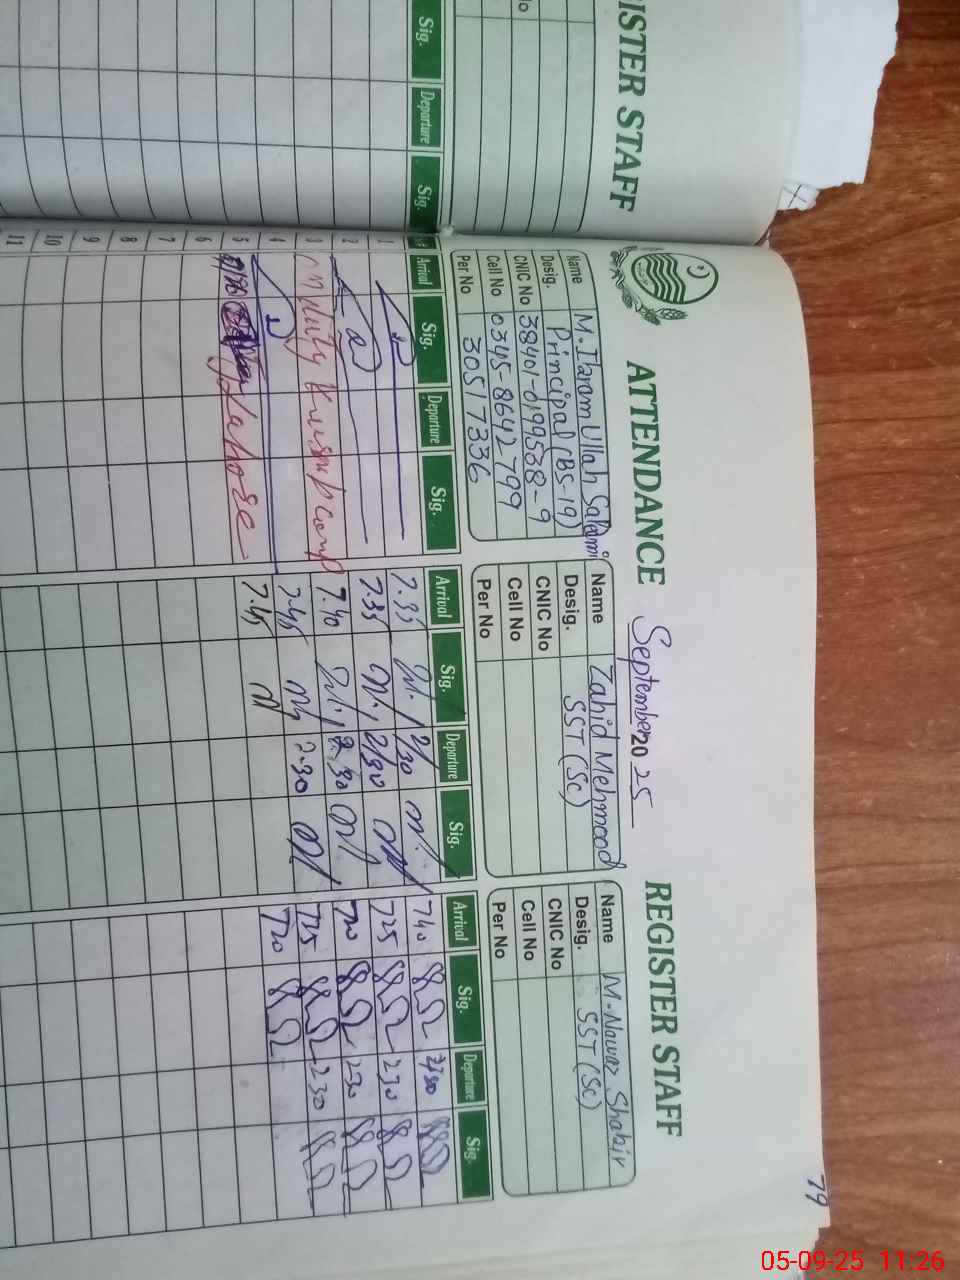 ISTER STAFF
No
Sig. Departure Sig.
79
ATTENDANCE September 2025 REGISTER STAFF
Name M. Ikram Ullah Salami
Desig. Principal (BS-19)
CNIC No 38401-0199538-9
Cell No 0345-8642799
Per No 30517336
Name Zahid Mehmood
Desig. SST (Sc)
CNIC No
Cell No
Per No
Name M. Nawaz Shabir
Desig. SST (Sc)
CNIC No
Cell No
Per No
Arrival Sig. Departure Sig. Arrival Sig. Departure Sig. Arrival Sig. Departure Sig.
1 7.35 2/30 740 2/30
2 7.35 2/30 725 230
3 on Duty Khushab Camp 7.40 2.30 720 230
4 7.45 2.30 725 230
5 Lahore 7.45 720
6
7
8
9
10
11
05-09-25 11:26